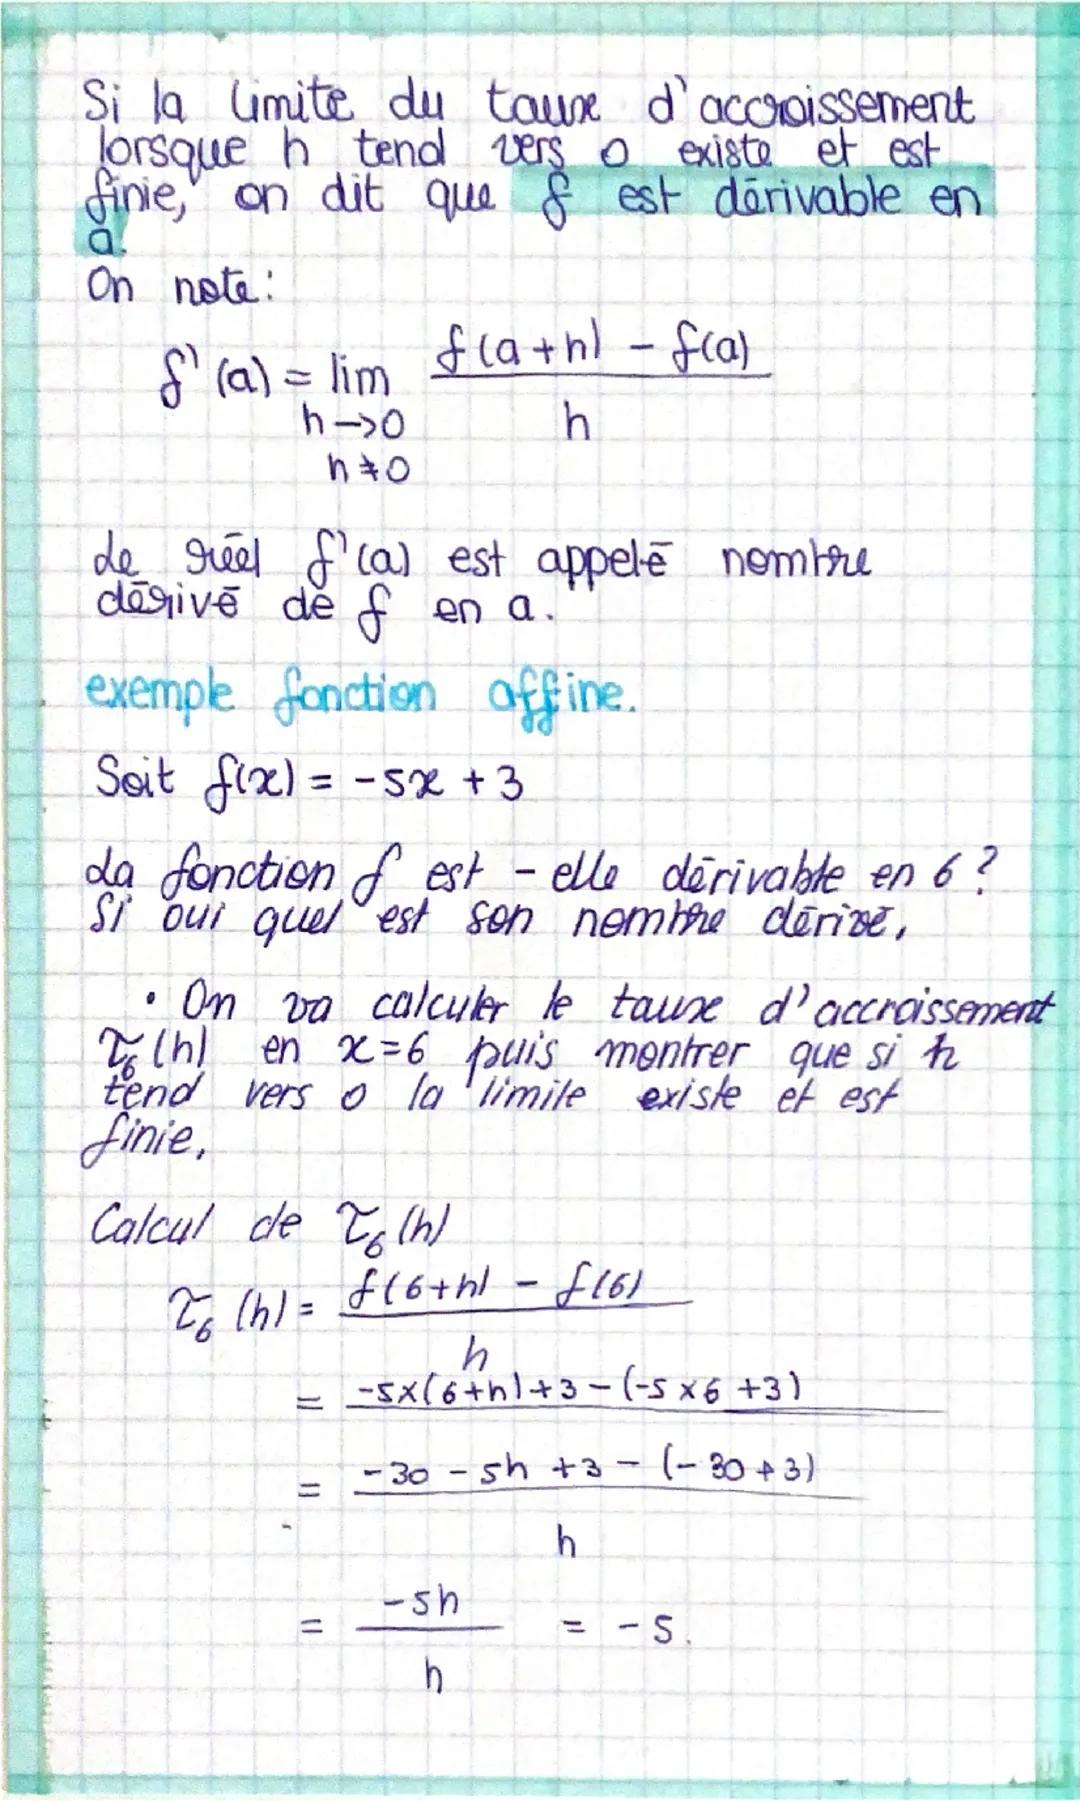 Si la limite du taux d'accroissement
lorsque h tend vers 0 existe et est
finie, on dit que f est dérivable en
a.
On note:
f'(a) = lim f(a+h) - f(a)
h->0 h
h≠0
Le réel f'(a) est appelé nombre
dérivé de f en a.
exemple fonction affine.
Soit f(x) = -5x + 3
La fonction f est - elle dérivable en 6?
Si oui quel est son nombre dérivé.
• On va calculer le taux d'accroissement
τ₆(h) en x=6 puis montrer que si h
tend vers 0 la limite existe et est
finie.
Calcul de τ₆(h)
τ₆(h) = f(6+h) - f(6)
h
= -5×(6+h)+3-(-5×6+3)
= -30 - 5h + 3 - (-30+3)
h
= -5h = -5.
h